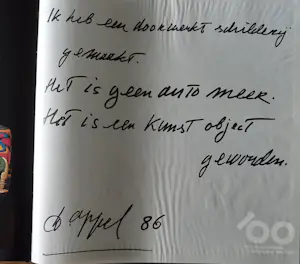 Ik heb een doorwerkt schilderij
gemaakt.
Het is geen auto meer.
Het is een Kunst object
geworden.
appel 86
100